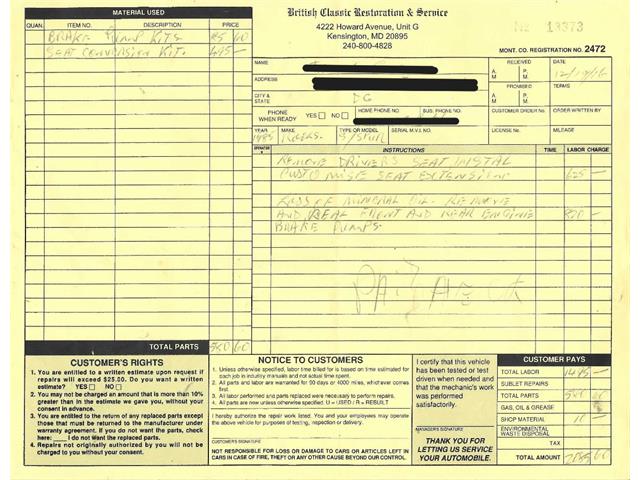 British Classic Restoration & Service
4222 Howard Avenue, Unit G
Kensington, MD 20895
240-800-4828
No 13373
MONT. CO. REGISTRATION NO. 2472
MATERIAL USED
QUAN. ITEM NO. DESCRIPTION PRICE
BRAKE PUMP KITS 85 60
SEAT CONVERSION KIT. 495 —
TOTAL PARTS 580 60
NAME
ADDRESS
CITY & STATE DC
PHONE WHEN READY YES NO HOME PHONE NO. BUS. PHONE NO.
RECEIVED A.M. P.M.
DATE 12/19/16
PROMISED A.M. P.M.
TERMS
CUSTOMER ORDER No. ORDER WRITTEN BY
YEAR MAKE TYPE OR MODEL SERIAL M.V.I. NO. LICENSE No. MILEAGE
1985 ROLLS. S/SPUR
OPERATION # INSTRUCTIONS TIME LABOR CHARGE
REMOVE DRIVERS SEAT INSTAL
CUSTOMISE SEAT EXTENSION 625 —
LOSS OF MINERAL OIL. REMOVE
AND RESEAL FRONT AND REAR ENGINE
BRAKE PUMPS.
PAID
CUSTOMER'S RIGHTS
1. You are entitled to a written estimate upon request if
repairs will exceed $25.00. Do you want a written
estimate? YES NO
2. You may not be charged an amount that is more than 10%
greater than in the estimate we gave you, without your
consent in advance.
3. You are entitled to the return of any replaced parts except
those that must be returned to the manufacturer under
warranty agreement. If you do not want the parts, check
here: ____ I do not Want the replaced parts.
4. Repairs not originally authorized by you will not be
charged to you without your consent.
NOTICE TO CUSTOMERS
1. Unless otherwise specified, labor time billed for is based on estimate for
each job in industry manuals and not actual time spent.
2. All parts and labor are warranted for 90 days or 4000 miles, whichever comes
first.
3. All labor performed and parts replaced were necessary to perform repairs.
4. All parts are new unless otherwise specified. U = USED / R = REBUILT
I hereby authorize the repair work listed. You and your employees may operate
the above vehicle for purposes of testing, inspection or delivery.
CUSTOMER'S SIGNATURE
NOT RESPONSIBLE FOR LOSS OR DAMAGE TO CARS OR ARTICLES LEFT IN
CARS IN CASE OF FIRE, THEFT OR ANY OTHER CAUSE BEYOND OUR CONTROL.
I certify that this vehicle
has been tested or test
driven when needed and
that the mechanic's work
was performed
satisfactorily.
MANAGER'S SIGNATURE
THANK YOU FOR
LETTING US SERVICE
YOUR AUTOMOBILE.
CUSTOMER PAYS
TOTAL LABOR
SUBLET REPAIRS
TOTAL PARTS 580 60
GAS, OIL & GREASE
SHOP MATERIAL 10 —
ENVIRONMENTAL WASTE DISPOSAL
TAX
TOTAL AMOUNT